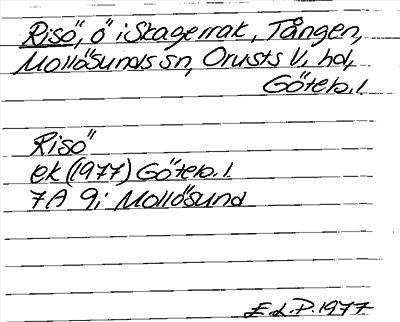 Risö, ö i Skagerrak, Tången,
Mollösunds sn, Orusts V, hd,
Göteb. l.
Risö
ek (1977) Göteb. l.
7A 9i Mollösund
E. L. P. 1977